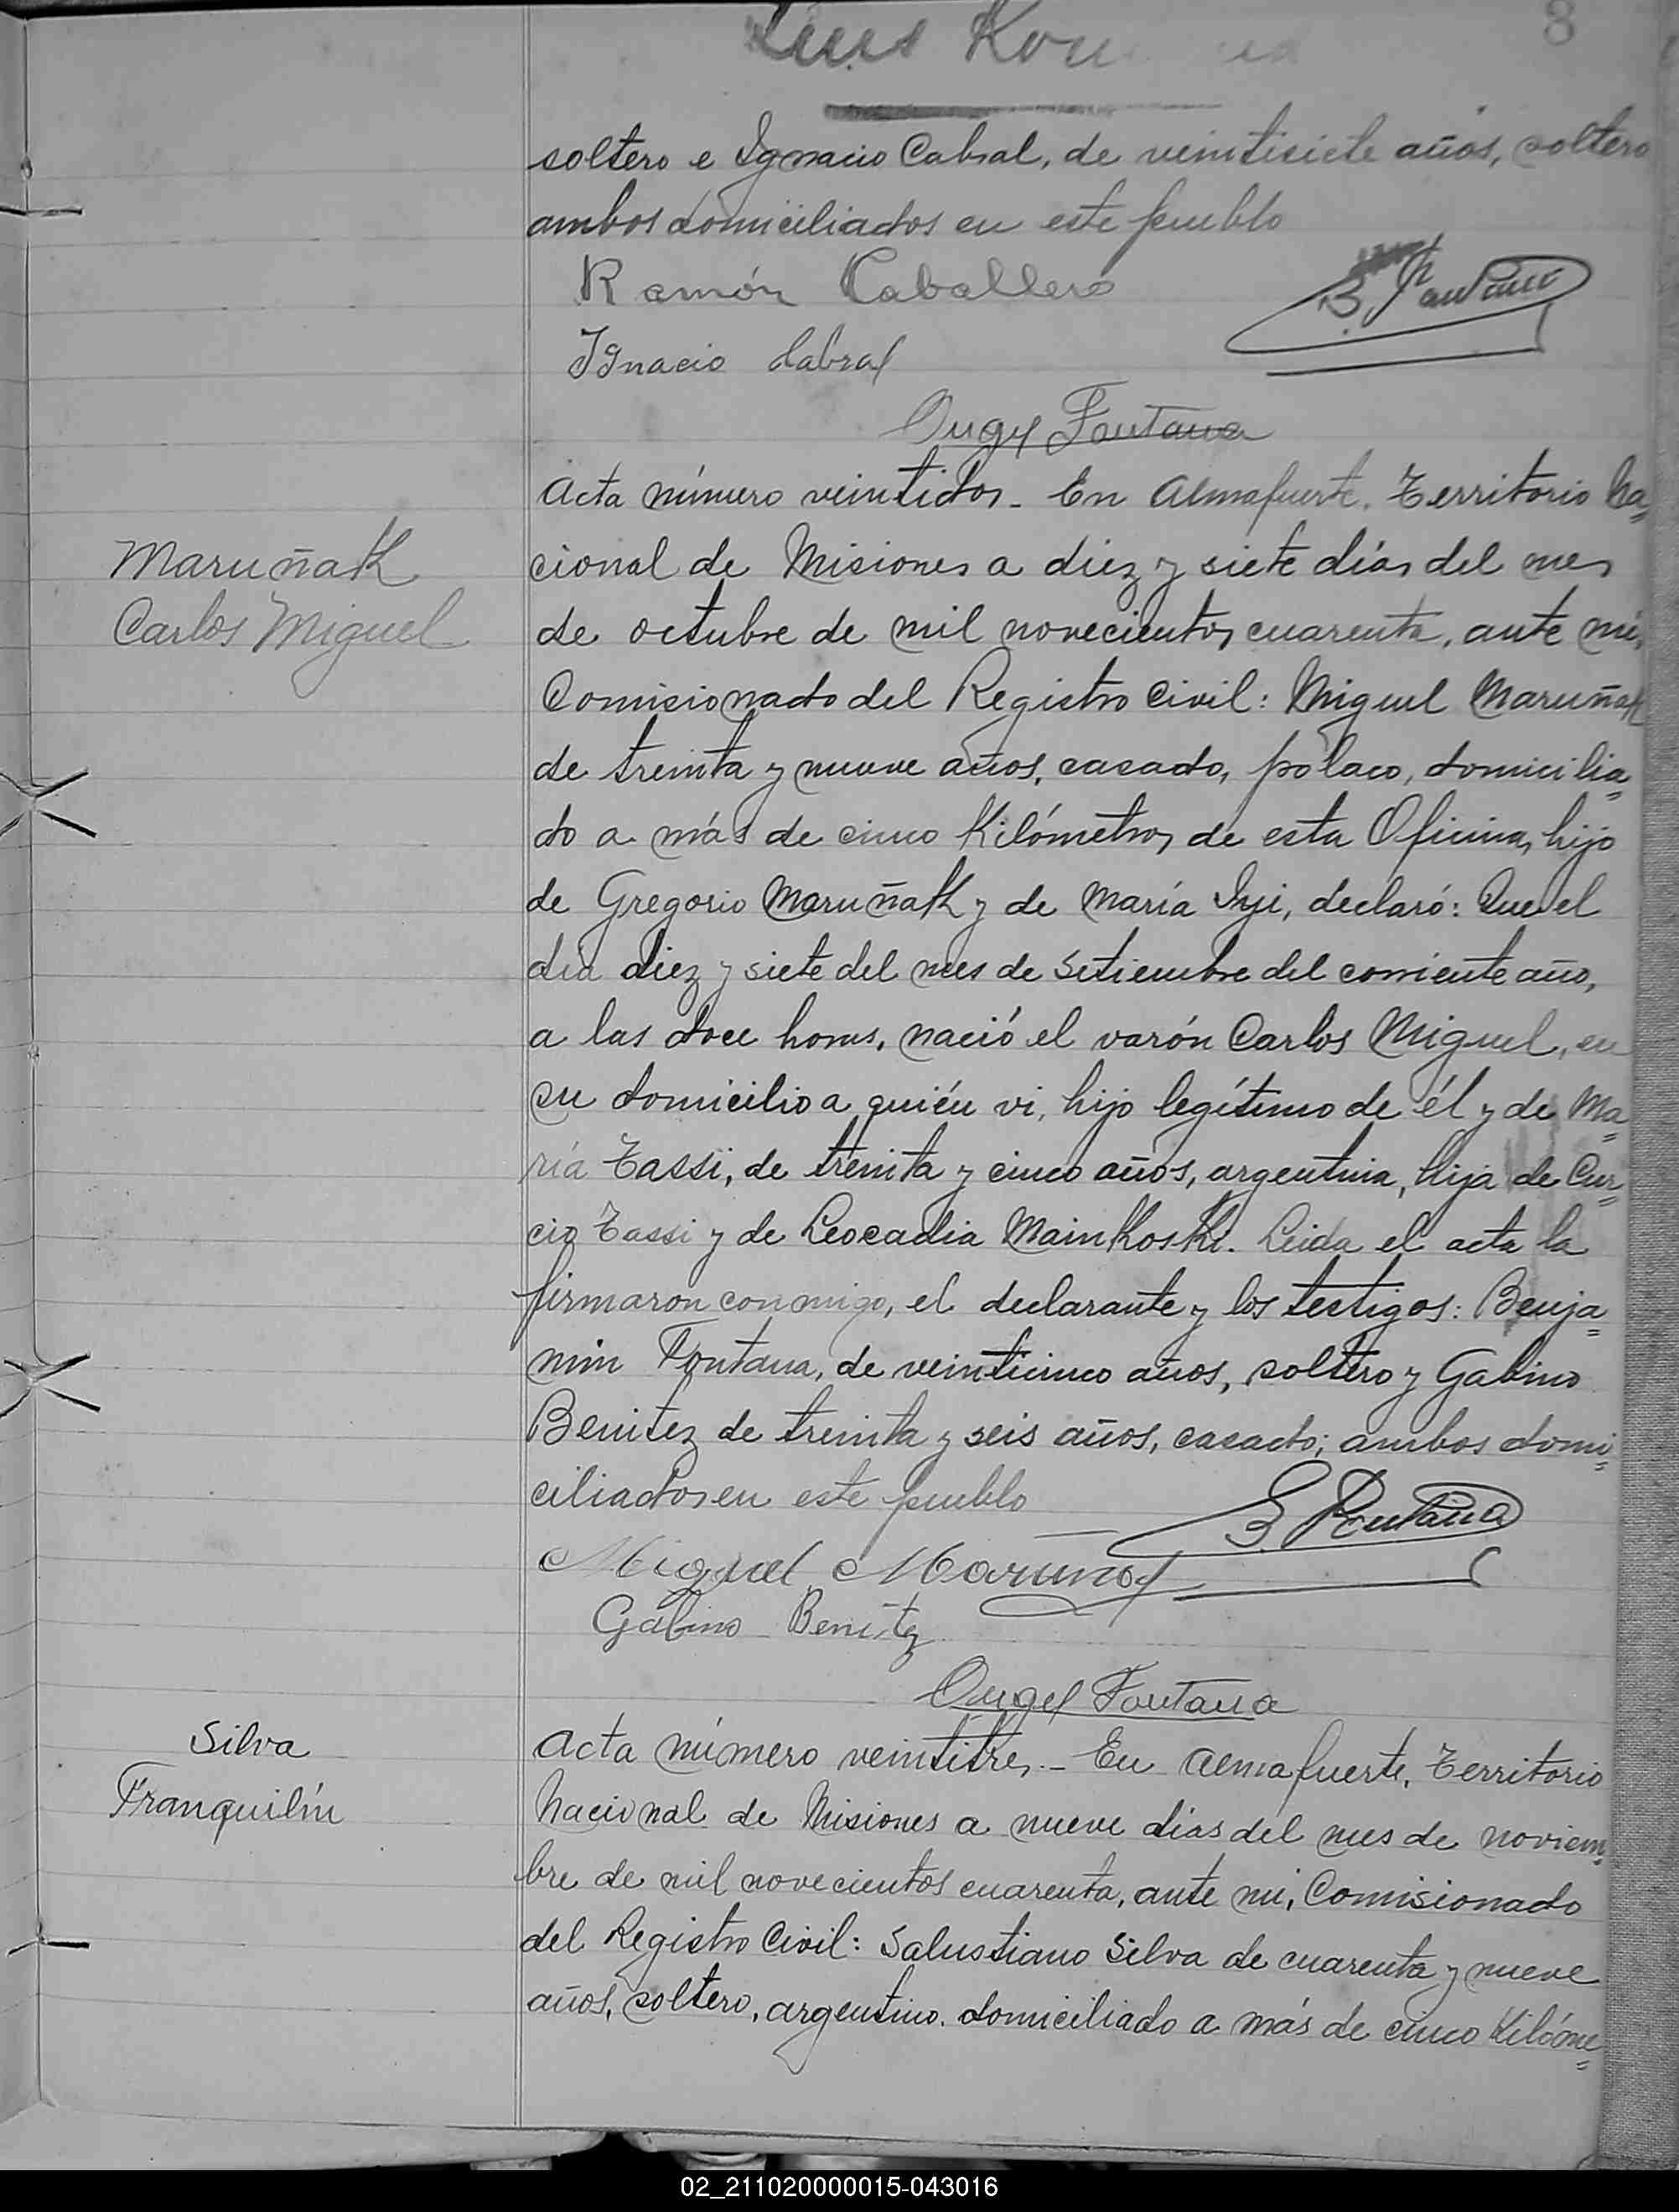 Luis
8
soltero e Ignacio Cabral, de veintisiete años, soltero
ambos domiciliados en este pueblo
Ramón Caballero
B. Fontana
Ignacio Cabral
Angel Fontana
Acta número veintidos. En Almafuerte, Territorio Na=
Maruñak
cional de Misiones a diez y siete días del mes
Carlos Miguel
de octubre de mil novecientos cuarenta, ante mí,
Comisionado del Registro Civil: Miguel Maruñak
de treinta y nueve años, casado, polaco, domicilia=
do a más de cinco Kilómetros de esta Oficina, hijo
de Gregorio Maruñak y de María Inji, declaró: Que el
día diez y siete del mes de setiembre del corriente año,
a las doce horas, nació el varón Carlos Miguel, en
su domicilio a quién vi, hijo legítimo de él y de Ma=
ría Tassi, de treinta y cinco años, argentina, hija de Cur=
cio Tassi y de Leocadia Mainkoski. Leida el acta la
firmaron conmigo, el declarante y los testigos: Benja=
min Fontana, de veinticinco años, soltero y Gabino
Benitez de treinta y seis años, casado; ambos domi=
ciliados en este pueblo
B. Fontana
Miguel Marunak
Gabino Benitez
Angel Fontana
Silva
Acta número veintitres.- En Almafuerte, Territorio
Franquilín
Nacional de Misiones a nueve días del mes de noviem=
bre de mil novecientos cuarenta, ante mi, Comisionado
del Registro Civil: Salustiano Silva de cuarenta y nueve
años, soltero, argentino, domiciliado a más de cinco Kilóme=
02_211020000015-043016